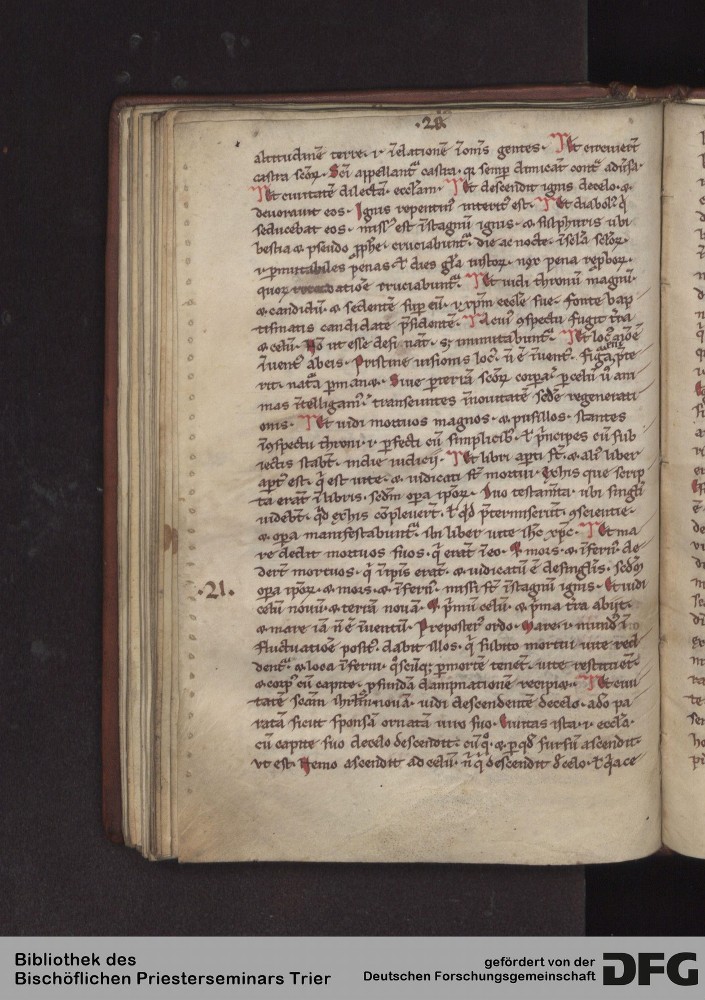 .20.
altitudinē terre. ⁊ ĩelationē ĩoms gentes. Et circuierūt
castra scõꝝ. Sci appellant᷑ castra. q̇ semp dimicāt cont᷑ adũsa.
Et ciuitatē dilectā. eccl̄am. Et descendit ignis decelo. ⁊
deuorauit eos. Ignis repentin᷒ interit᷒ est. Et diabol᷒ q̇
seducebat eos. miss᷒ est ĩstagnū ignis. ⁊ sulphuris ubi
bestia ⁊ pseudo ꝓph̄e. cruciabunt᷑. die ac nocte. ĩsc̄la sc̄loꝝ.
⁊ ꝑmutabiles penas. ł dies gl̄a iustoꝝ. nox pena rep̄boꝝ.
quoꝝ cruciabunt᷑. Et uidi thronū magnū.
⁊ candidū. ⁊ sedentē sup eū. ⁊ xp̄m eccl̄e sue. fonte bap
tismatis candidate p̄sidentē. A cui᷒ ꝯspectu fugit t̄ra
⁊ celū. Nō ut esse desināt. sꝫ immutabunt᷑. Et loc᷒ nō ē
ĩuent᷒ abeis. Pristine uisionis loc᷒ ñ ē ĩuent᷒. figura p̄te
riit. nat᷑a ꝑmanꝫ. Siue ꝑ terrā scõꝝ corpora. ꝑ celū ũ ani
mas ĩtelligam᷒. transeuntes ĩnouitatē sedē regenerati
onis. Et uidi mortuos magnos. ⁊ pusillos. stantes
ĩꝯspectu throni. ⁊ ꝑfecti cū simplicib᷒. ł p̄ncipes cū sub
iectis stabt̄. ĩdie iudicii. Et libri apti st̄. ⁊ ali᷒ liber
apt᷒ est. q̇ est uite. ⁊ iudicati st̄ mortui. Exhis que scrip
ta erāt ĩlibris. scdm opa ip̄oꝝ. Duo testam̄ta. ubi singli
uidebt̄. qd̄ exhis cōpleuert̄. ł qd̄ p̄termiserūt. ꝯscientie.
⁊ opa manifestabunt᷑. sui liber uite ih̄c xp̄c. Et ma
re dedit mortuos suos. q̇ erāt ĩeo. Et mors. ⁊ ĩfern᷒ de
dert̄ mortuos. q̇ ĩip̄is erāt. ⁊ iudicatū ē desinglis. scdm
opa ip̄oꝝ. ⁊ mors. ⁊ ĩfern᷒. missi st̄ ĩstagnū ignis. Et uidi
.21.
celū nouū. ⁊ terrā nouā. Et p̄mū celū. ⁊ p̄ma t̄ra abiit.
⁊ mare iā ñ ē ĩuentū. Preposter᷒ ordo. Mare. ⁊ mund᷒ ĩ
fluctuatione posit᷒. dabit illos. q̇ subito mortui uite red
dent᷑. ⁊ loca ĩferni. q̇scūqꝫ ꝑmortē tenet. uite restituet.
⁊ corp᷒ cū capite. ꝓfundā dampnationē recipiꝫ. Et ciui
tatē scām ihr̄lm nouā. uidi descendentē decelo. ado pa
ratā sicut sponsā ornatā uiro suo. Ciuitas ista. ⁊ eccl̄a.
cū capite suo decelo descendit. cū q̊. ⁊ ꝑ qd̄ sursū ascendit.
ut est. Nemo ascendit ad celū. ñ q̇ descendit d̄celo. ł q̇a ce
Bibliothek des
Bischöflichen Priesterseminars Trier
gefördert von der
Deutschen Forschungsgemeinschaft
DFG